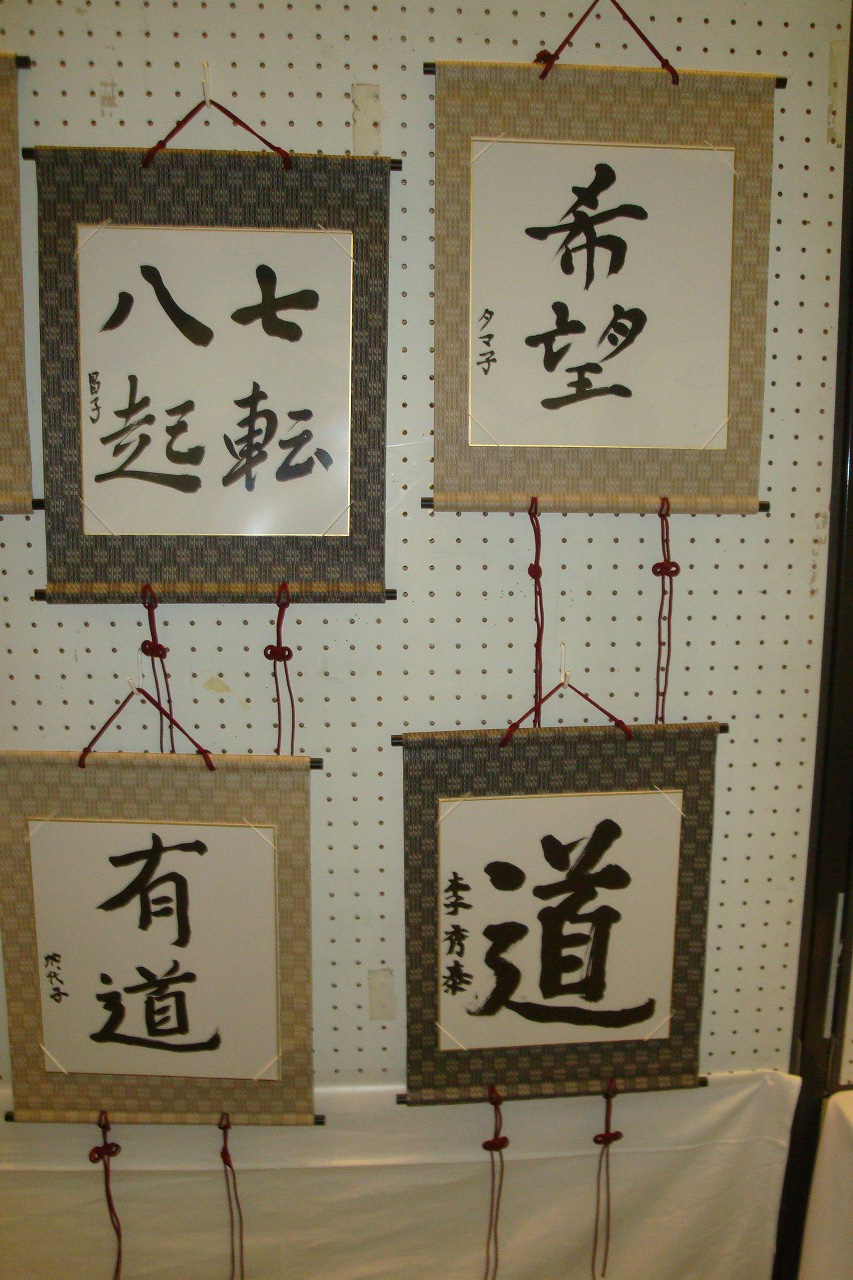 希望
タマ子
七転
八起
昌子
道
李秀泰
有道